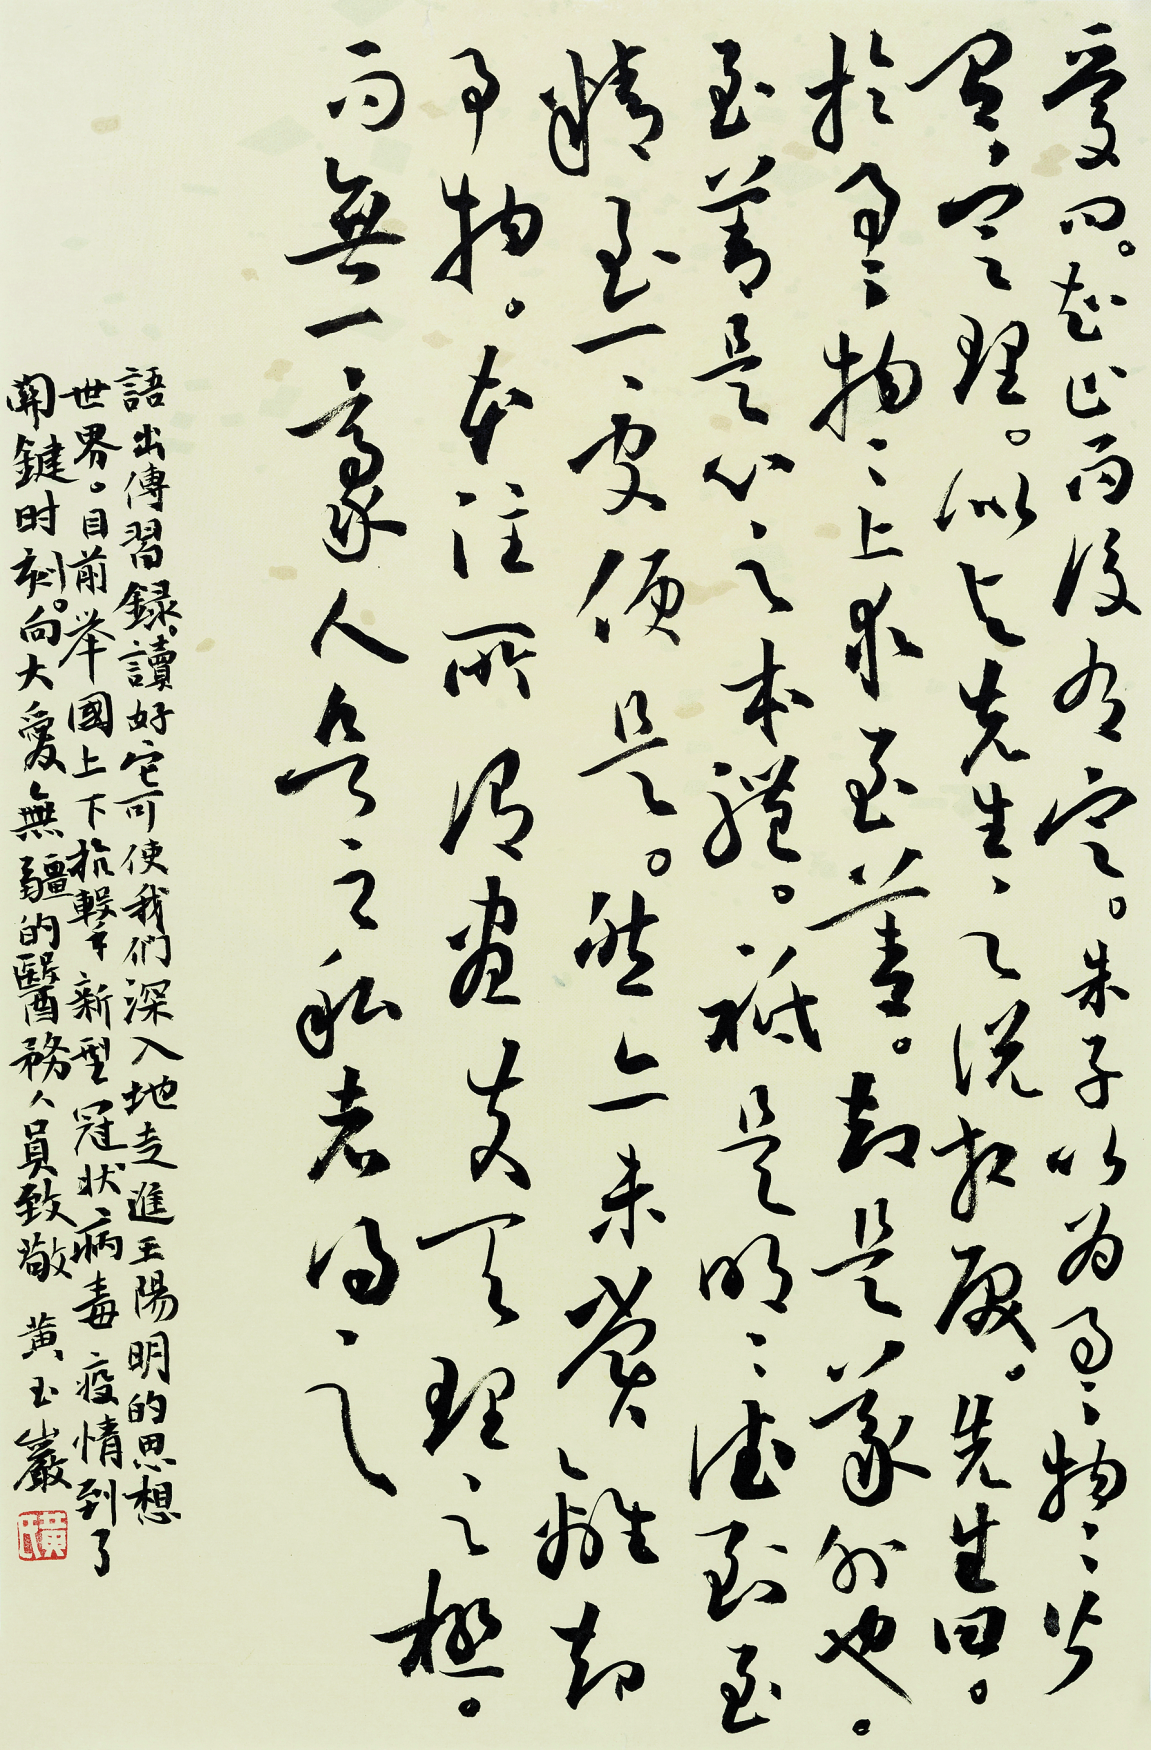 爱曰。知止而後有定。朱子以为事〻物〻皆
有定理。似与先生之说相戾。先生曰。
於事〻物〻上求至善。却是义外也。
至善是心之本體。祇是明〻德到至
精至一處便是。然亦未尝離却
事物。本注所谓盡夫天理之極。
而無一豪人欲之私者得之
語出傳習録。讀好它可使我们深入地走進王陽明的思想
世界。目前举國上下抗擊新型冠状病毒疫情到了
関鍵时刻。向大愛無疆的醫務人員致敬 黄玉巖
黄氏